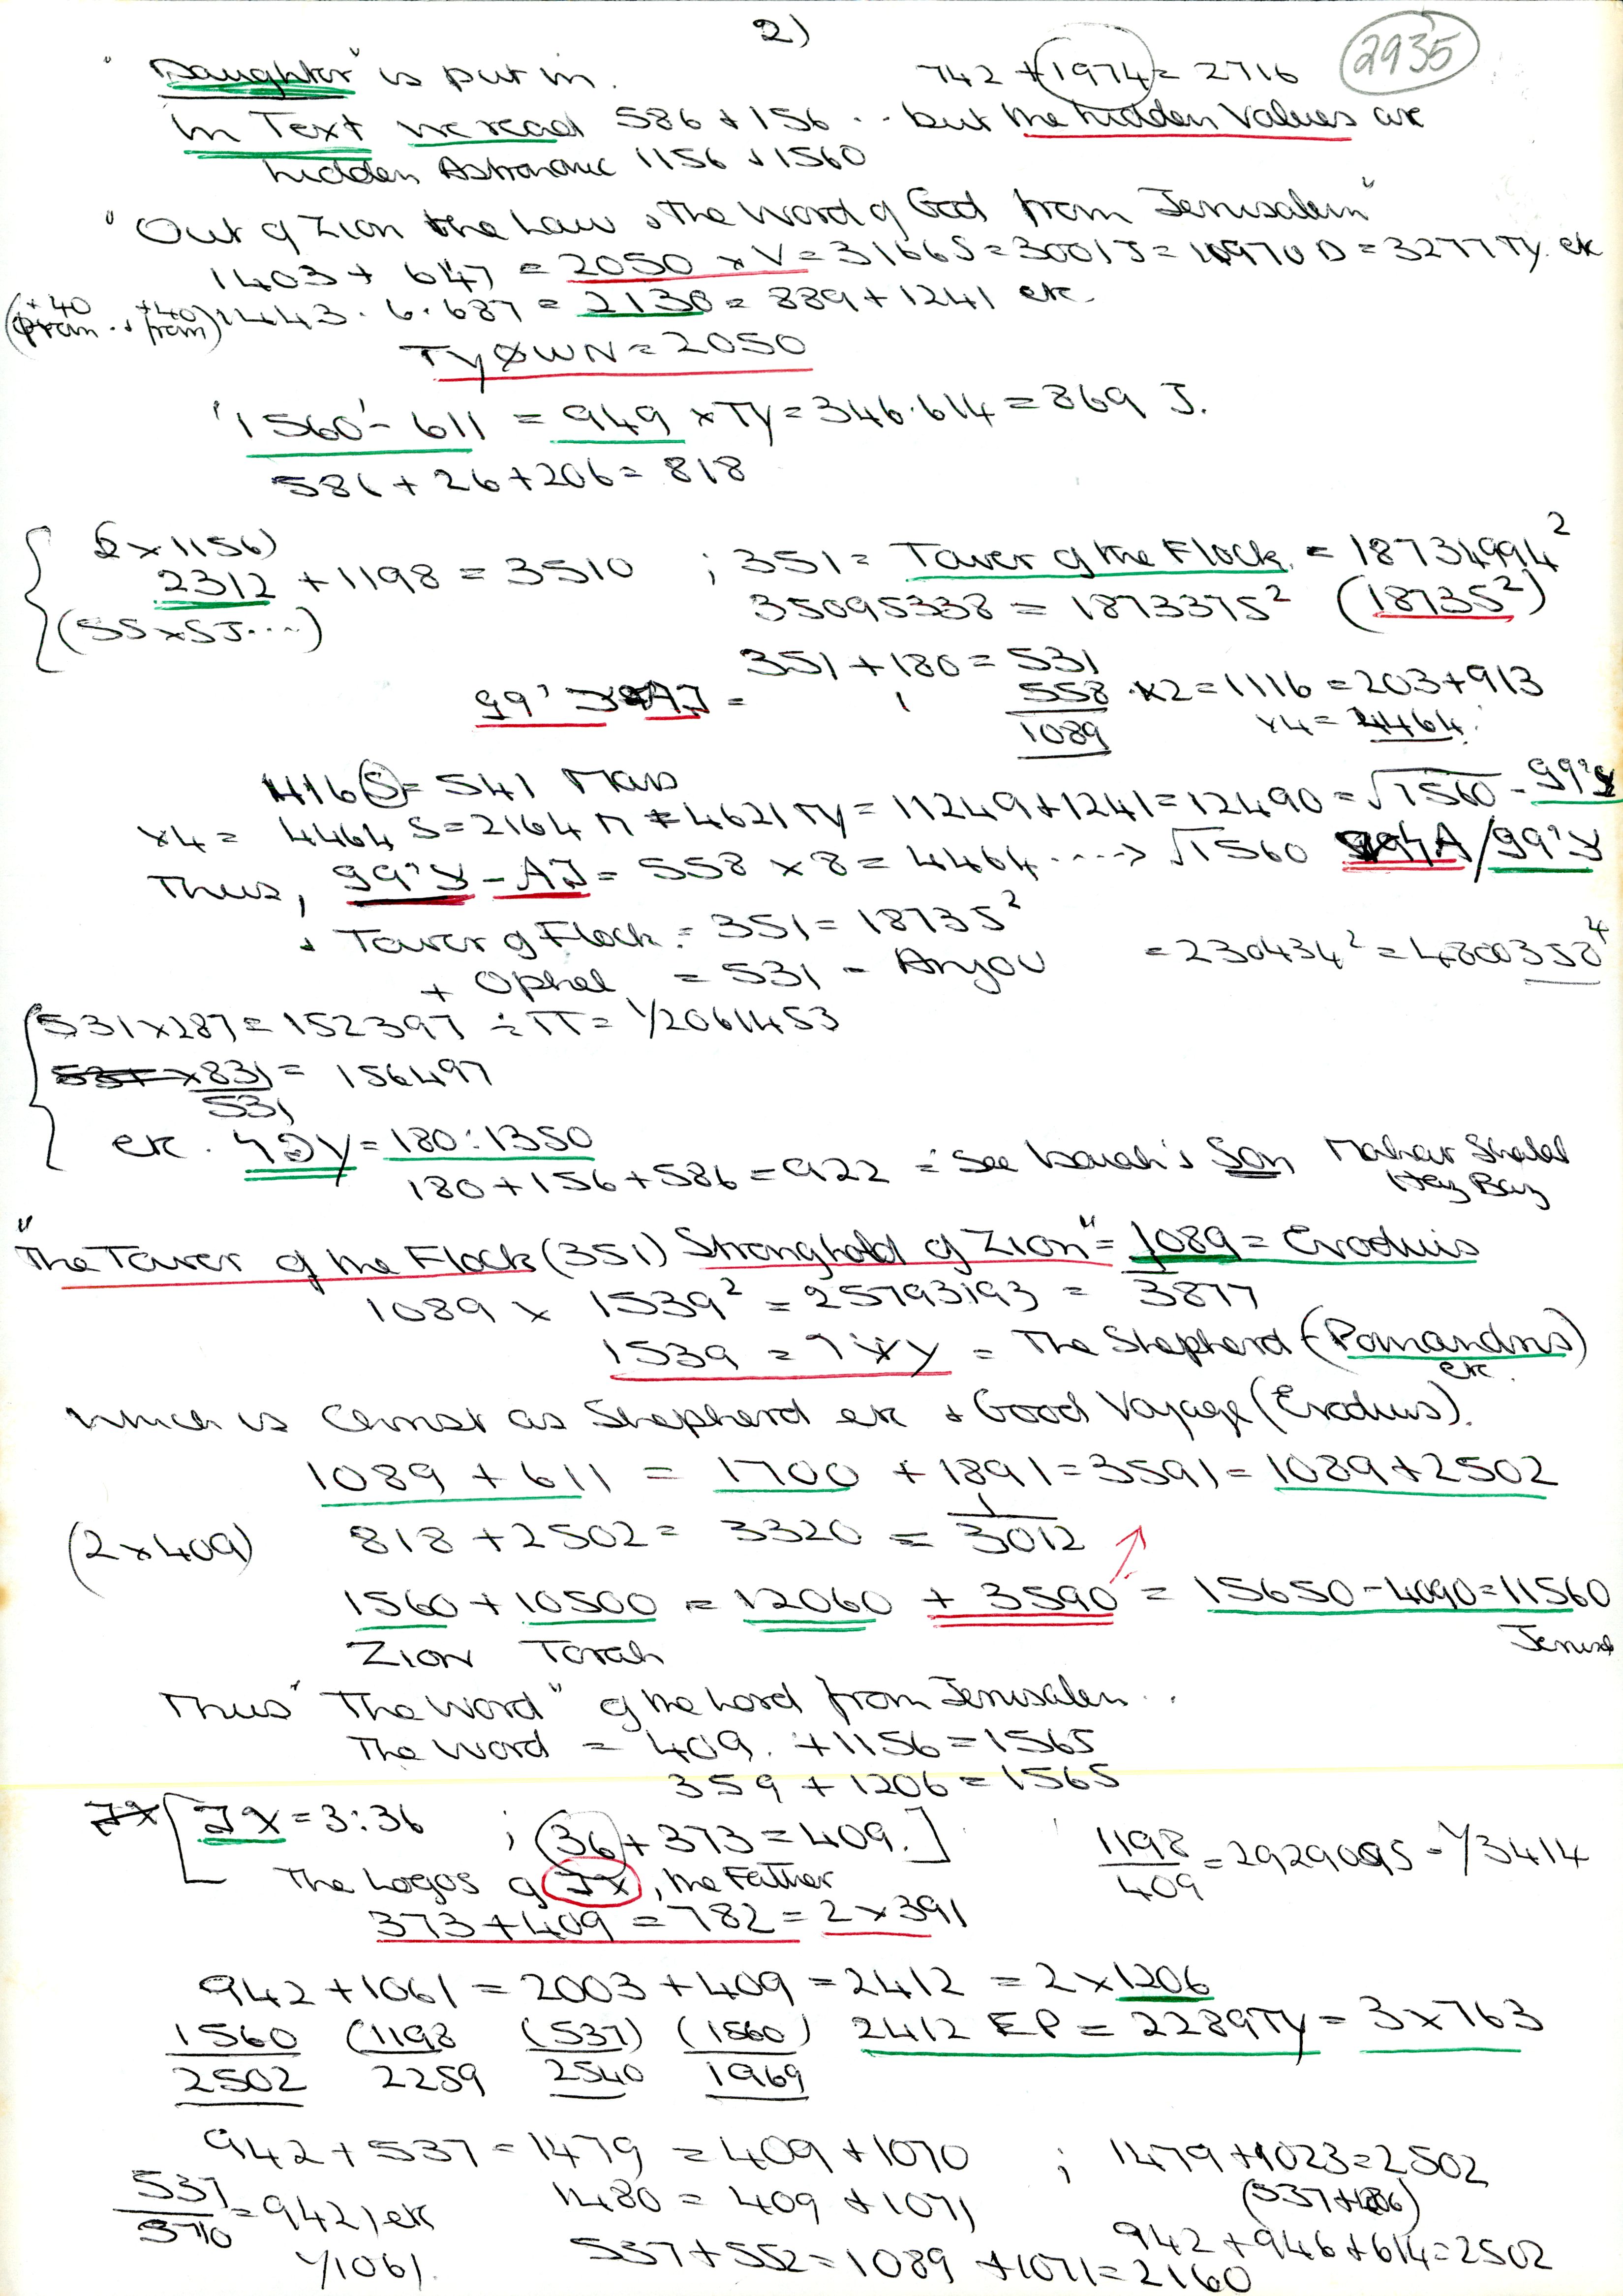 2)
2935
"Daughter" is put in. 742 + 1974 = 2716
In Text we read 586 + 156 .. but the hidden Values are
hidden Astronomic 1156 + 1560
"Out of Zion the Law & The Word of God from Jerusalem"
1403 + 647 = 2050 x V = 3166 S = 3001 J = 10970 D = 3277 Ty. etc
(+40 from . + +40 from) 1443 . 6 . 687 = 2130 = 889 + 1241 etc.
TyØWN = 2050
'1560' - 611 = 949 x Ty = 346.614 = 869 J.
586 + 26 + 206 = 818
(2 x 1156)
2312 + 1198 = 3510 ; 351 = Tower of the Flock = 18734994²
(55 x 5J....) 35095338 = 1873375² (18735²)
351 + 180 = 531
558 x 2 = 1116 = 203 + 913
1089 x 4 = 4464.
1116 S = 541 Mars
x4 = 4464 S = 2164 M = 4621 Ty = 11249 + 1241 = 12490 = √1560 -
Thus, = 558 x 8 = 4464 ....> √1560
+ Tower of Flock = 351 = 18735²
+ Ophel = 531 - Anjou = 230434² = 4800358⁴
531 x 287 = 152397 ÷ π = 1/2061453
x 831 = 156497
531
etc. = 180 : 1350
180 + 156 + 586 = 922 = See Isaiah's Son Maher Shalal Haz Baz
"The Tower of the Flock (351) Stronghold of Zion" = 1089 = Exoduis
1089 x 1539² = 25793193 = 1/3877
1539 = = The Shepherd (Pomandrus) etc.
which is Christ as Shepherd etc & Good Voyage (Exodius).
1089 + 611 = 1700 + 1891 = 3591 = 1089 + 2502
(2 x 409) 818 + 2502 = 3320 = 1/3012
1560 + 10500 = 12060 + 3590 = 15650 - 4090 = 11560
Zion Torah Jerusal
Thus "The Word" of the Lord from Jerusalem ..
The Word = 409. + 1156 = 1565
359 + 1206 = 1565
= 3 : 36 ; (36 + 373 = 409.] 1198/409 = 2929095 - 1/3414
The Logos of , the Father
373 + 409 = 782 = 2 x 391
942 + 1061 = 2003 + 409 = 2412 = 2 x 1206
1560 (1198 (537) (1560) 2412 EP = 2289 Ty = 3 x 763
2502 2259 2540 1969
942 + 537 = 1479 = 409 + 1070 ; 1479 + 1023 = 2502
537/5710 = 942) etc 1480 = 409 + 1071
1/1061. 537 + 552 = 1089 + 1071 = 2160
942 + 946 + 614 = 2502